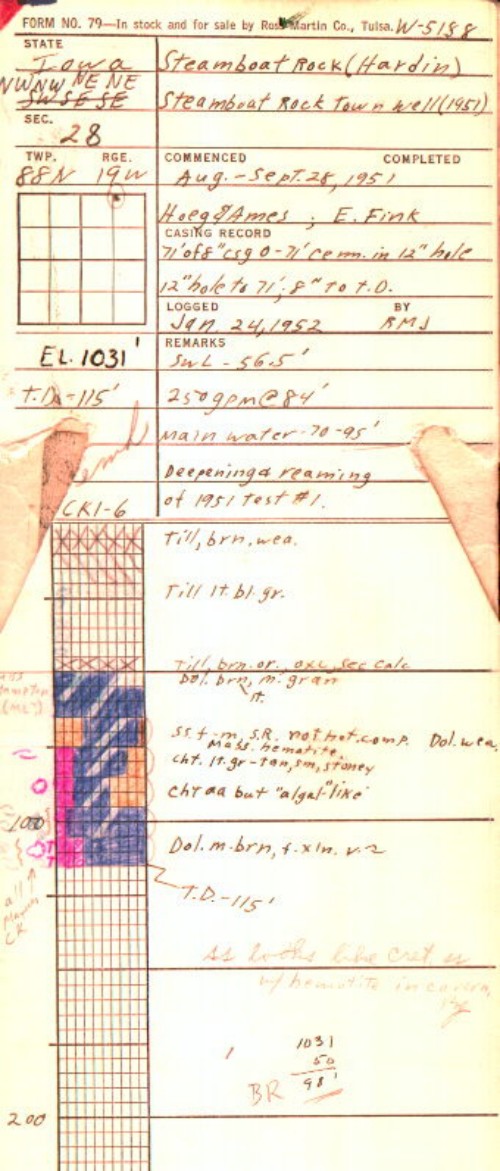 FORM NO. 79—In stock and for sale by Ross-Martin Co., Tulsa. W-5188
STATE
Iowa
Steamboat Rock (Hardin)
NW NW NE NE
SW SE SE
Steamboat Rock Town Well (1951)
SEC.
28
TWP. RGE.
88N 19W
COMMENCED COMPLETED
Aug. - Sept. 28, 1951
Hoeg & Ames ; E. Fink
CASING RECORD
71' of 8" csg 0-71' cemn. in 12" hole
12" hole to 71'; 8" to T.D.
LOGGED BY
Jan. 24, 1952 RMJ
EL. 1031'
REMARKS
SWL - 56.5'
T.D. -115'
250 gpm @ 84'
Main water - 70-95'
Deepening & reaming
of 1951 test #1.
CK1-6
Till, brn. wea.
Till lt. bl. gr.
Till, brn-or., oxc, sec calc
Dol. brn, m. gran
lt.
ss. f-m, S.R. not het. comp. Dol. wea.
Mass. hematite
cht. lt. gr-tan, sm, stoney
cht aa but "algal" like
100
Dol. m. brn, f. xln. v. ~
T.D. -115'
all
CK
looks like Cret. ss
w/ hematite in
1031
50
981'
BR
200